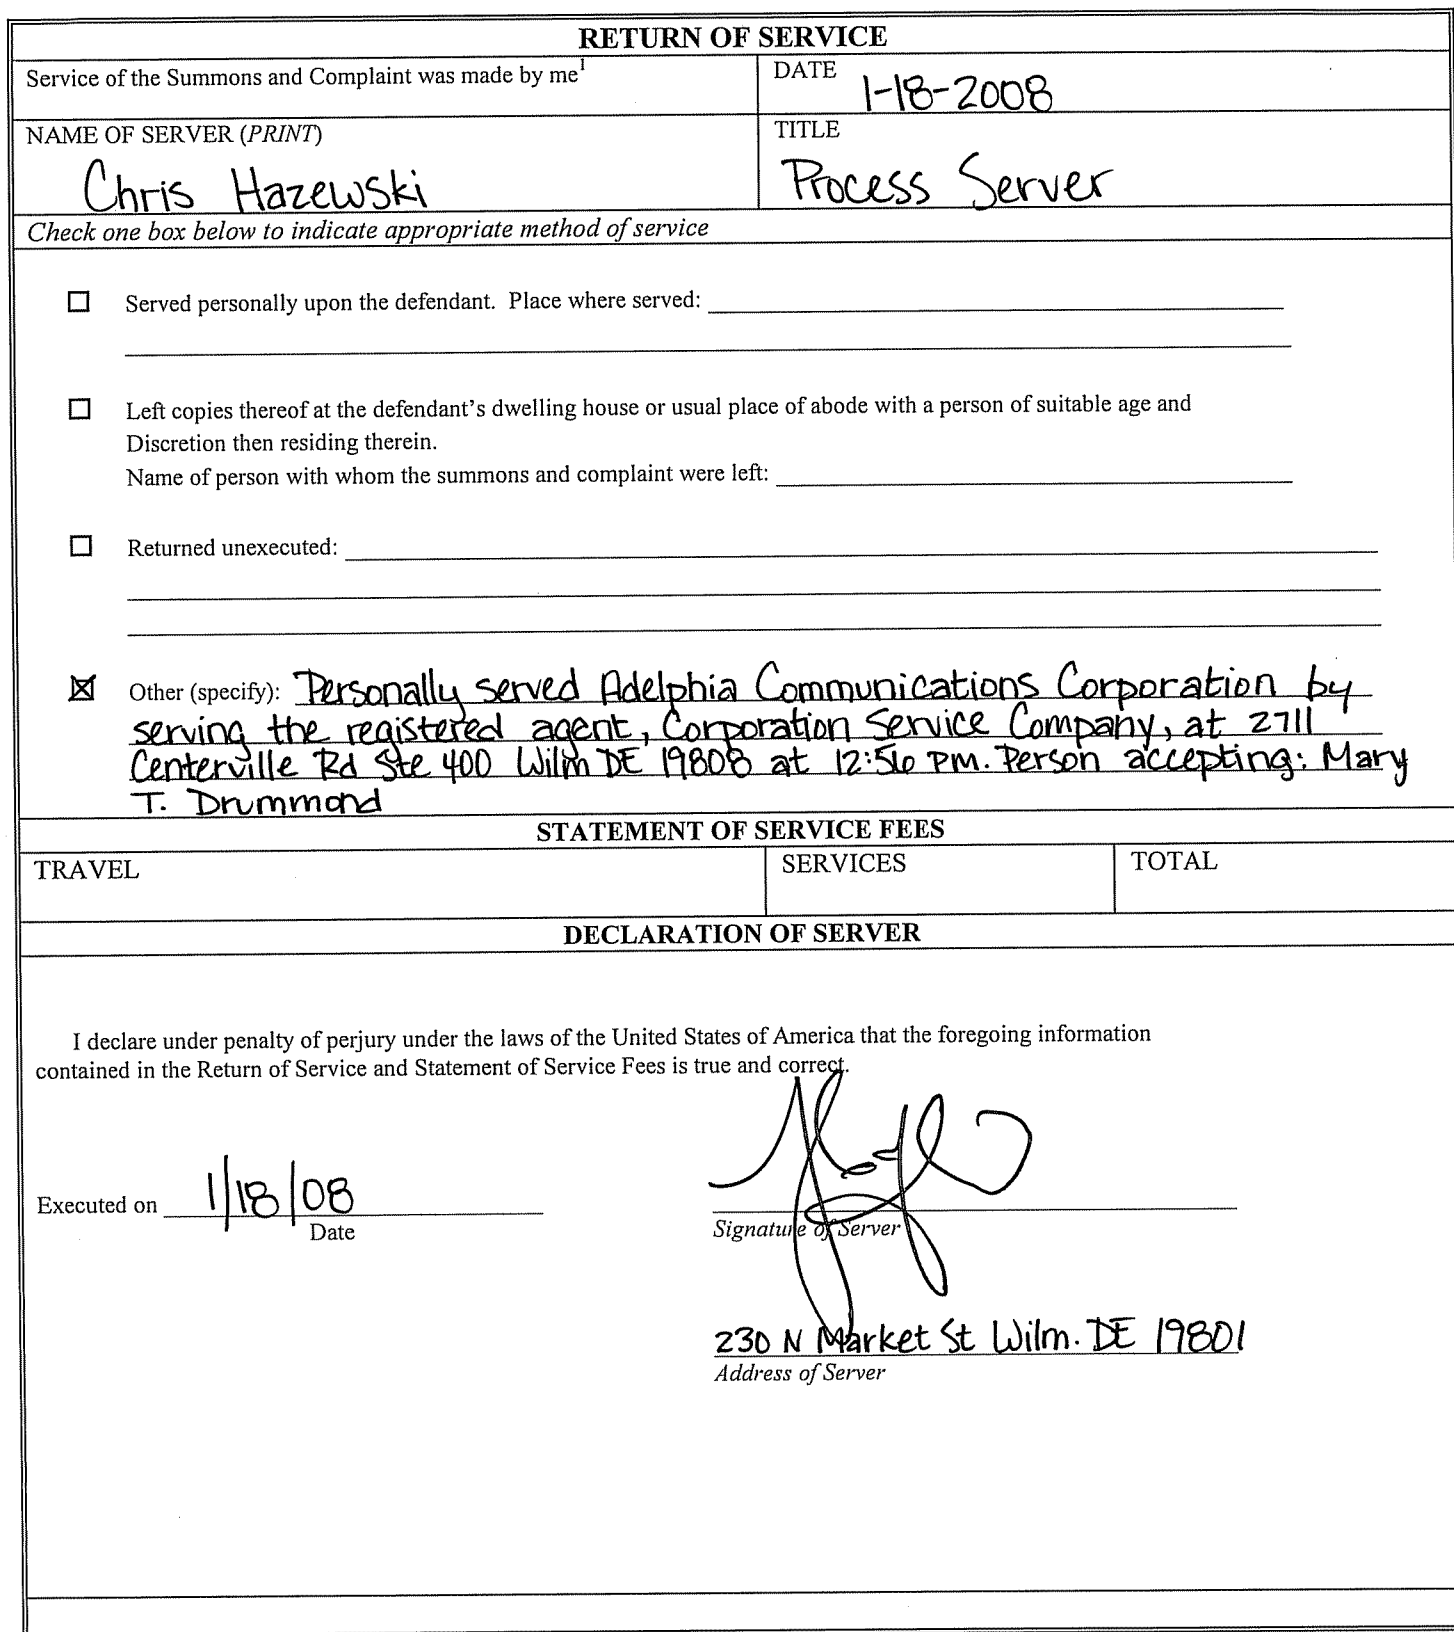 RETURN OF SERVICE
Service of the Summons and Complaint was made by me1
DATE
1-18-2008
NAME OF SERVER (PRINT)
Chris Hazewski
TITLE
Process Server
Check one box below to indicate appropriate method of service
☐ Served personally upon the defendant. Place where served:
☐ Left copies thereof at the defendant's dwelling house or usual place of abode with a person of suitable age and
Discretion then residing therein.
Name of person with whom the summons and complaint were left:
☐ Returned unexecuted:
☒ Other (specify): Personally served Adelphia Communications Corporation by
serving the registered agent, Corporation Service Company, at 2711
Centerville Rd Ste 400 Wilm DE 19808 at 12:56 pm. Person accepting: Mary
T. Drummond
STATEMENT OF SERVICE FEES
TRAVEL
SERVICES
TOTAL
DECLARATION OF SERVER
I declare under penalty of perjury under the laws of the United States of America that the foregoing information
contained in the Return of Service and Statement of Service Fees is true and correct.
Executed on 1/18/08
Date
Signature of Server
230 N Market St Wilm. DE 19801
Address of Server